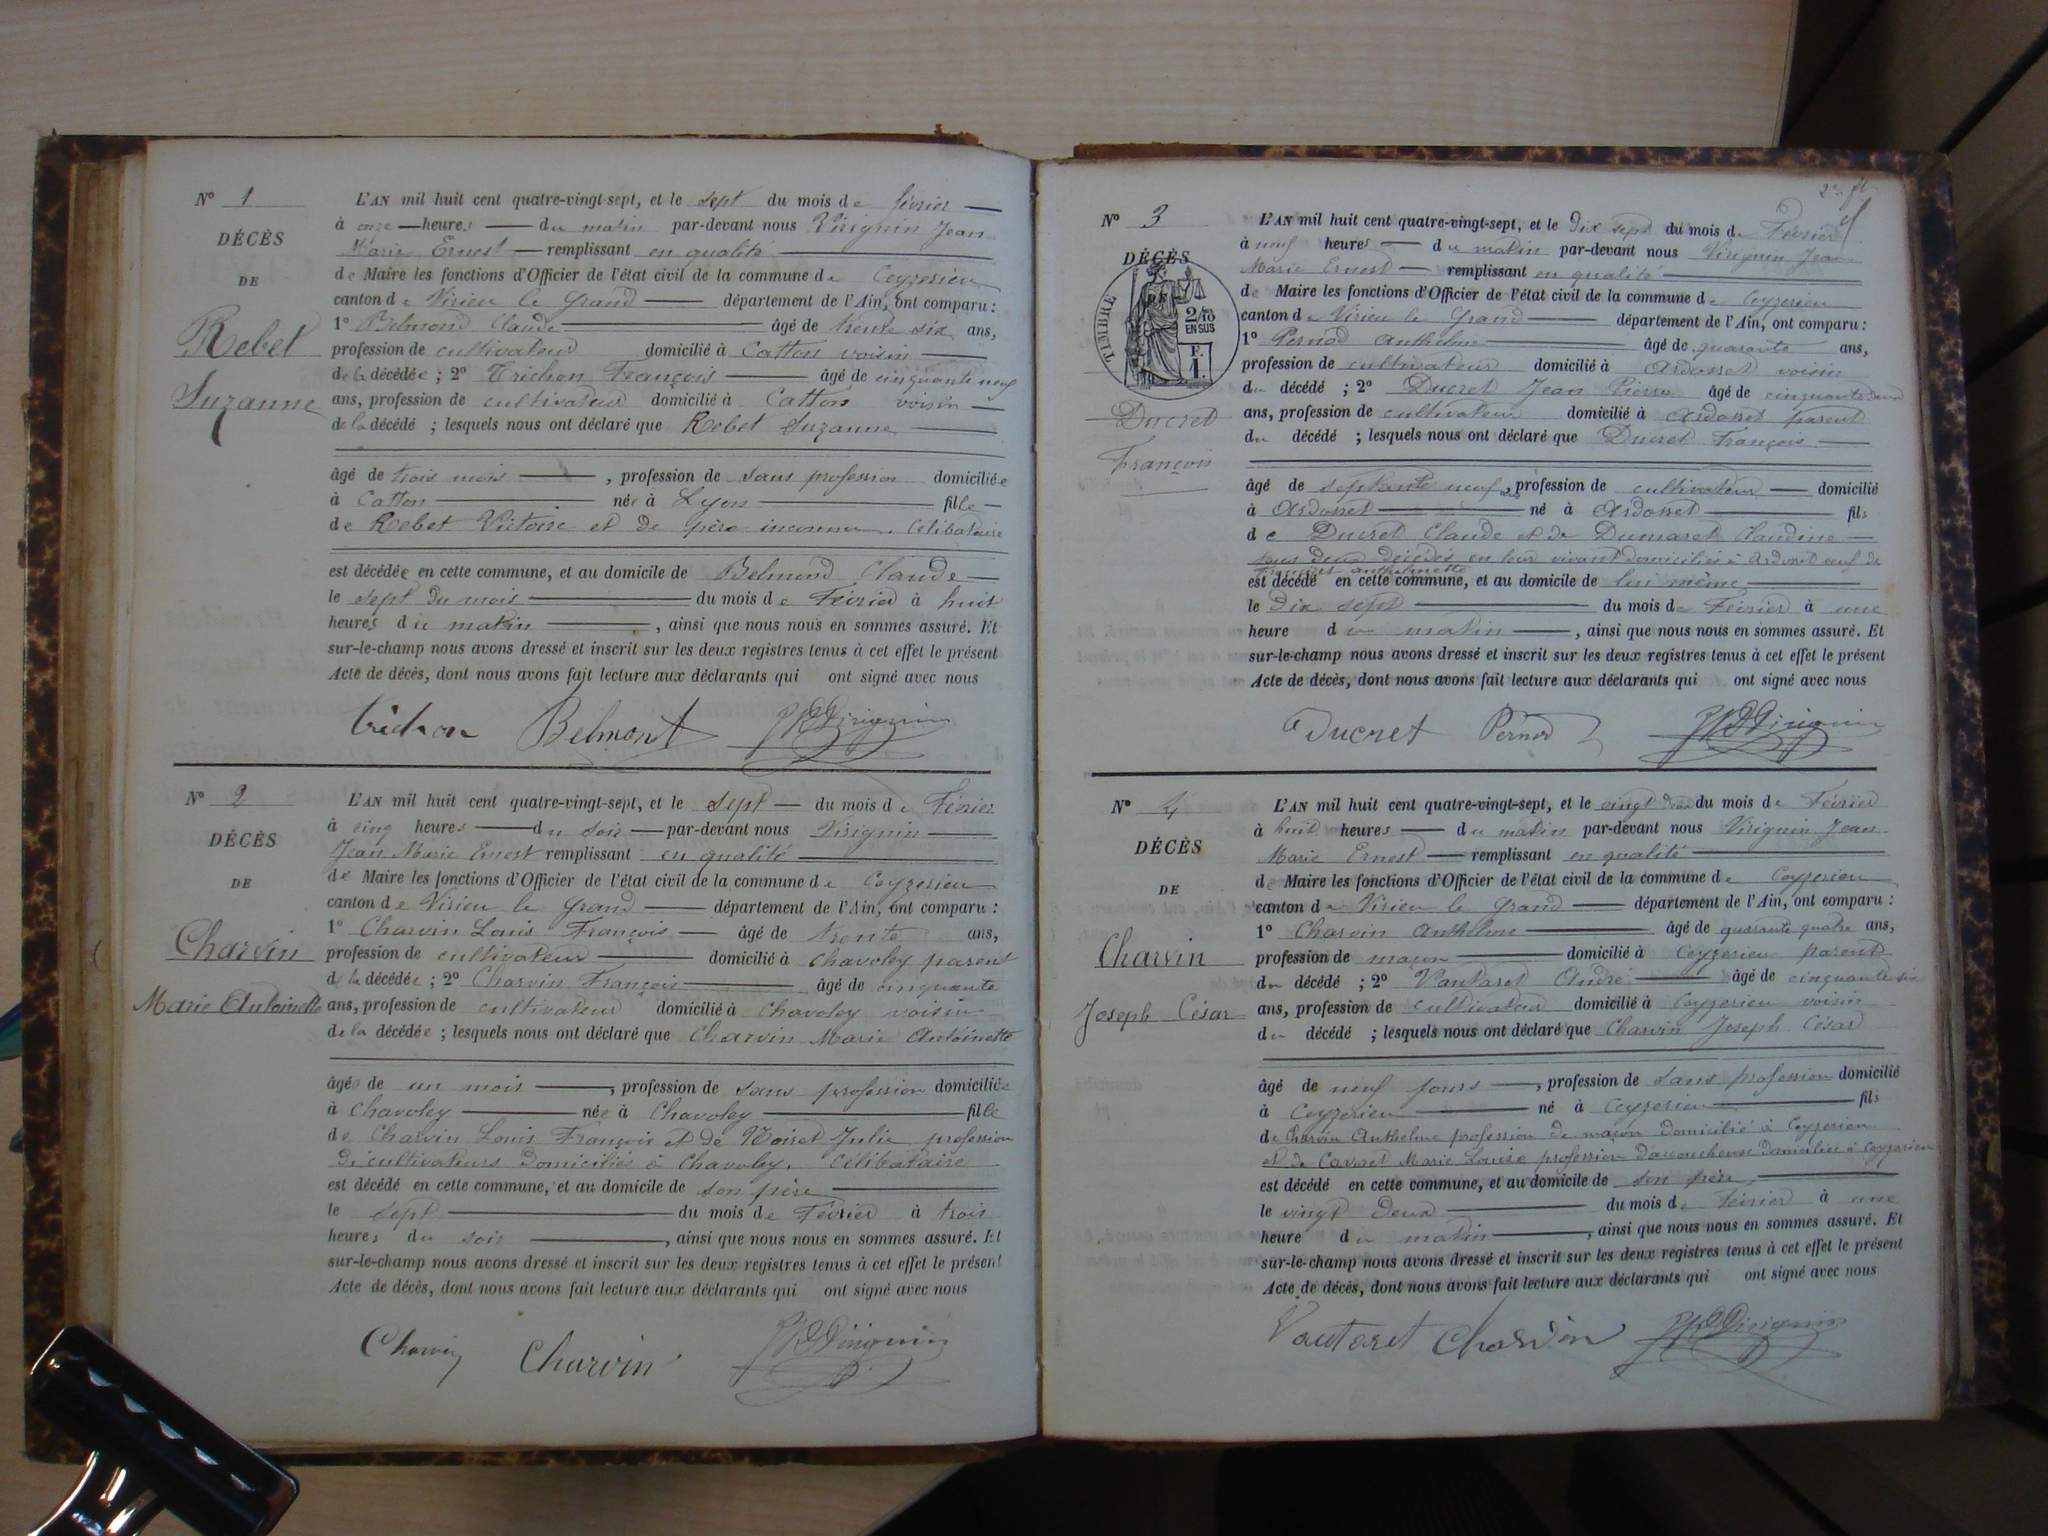 N° 1
DÉCÈS
DE
Rebet
Suzanne
L'AN mil huit cent quatre-vingt-sept, et le sept du mois de février
à onze heures du matin par-devant nous Virignin Jean
Marie Ernest remplissant en qualité
de Maire les fonctions d'Officier de l'état civil de la commune de Ceyzerieu
canton de Virieu le Grand département de l'Ain, ont comparu :
1° Belmond Claude âgé de trente six ans,
profession de cultivateur domicilié à Catton voisin
de la décédée ; 2° Trichon François âgé de cinquante neuf
ans, profession de cultivateur domicilié à Catton voisin
de la décédé ; lesquels nous ont déclaré que Rebet Suzanne
âgé de trois mois , profession de sans profession domiciliée
à Catton née à Lyon fille
de Rebet Victoire et de père inconnu. Célibataire
est décédée en cette commune, et au domicile de Belmond Claude
le sept du mois du mois de Février à huit
heures du matin , ainsi que nous nous en sommes assuré. Et
sur-le-champ nous avons dressé et inscrit sur les deux registres tenus à cet effet le présent
Acte de décès, dont nous avons fait lecture aux déclarants qui ont signé avec nous
trichon Belmont Virignin
N° 2
DÉCÈS
DE
Charvin
Marie Antoinette
L'AN mil huit cent quatre-vingt-sept, et le sept du mois de Février
à cinq heures du soir par-devant nous Virignin
Jean Marie Ernest remplissant en qualité
de Maire les fonctions d'Officier de l'état civil de la commune de Ceyzerieu
canton de Virieu le Grand département de l'Ain, ont comparu :
1° Charvin Louis François âgé de trente ans,
profession de cultivateur domicilié à Chavoley parent
de la décédée ; 2° Charvin François âgé de cinquante
ans, profession de cultivateur domicilié à Chavoley voisin
de la décédée ; lesquels nous ont déclaré que Charvin Marie Antoinette
âgée de un mois , profession de sans profession domiciliée
à Chavoley née à Chavoley fille
de Charvin Louis François et de Julie profession
de cultivateurs domiciliés à Chavoley. Célibataire
est décédé en cette commune, et au domicile de son père
le sept du mois de Février à trois
heures du soir , ainsi que nous nous en sommes assuré. Et
sur-le-champ nous avons dressé et inscrit sur les deux registres tenus à cet effet le présent
Acte de décès, dont nous avons fait lecture aux déclarants qui ont signé avec nous
Charvin Charvin Virignin
2e ft
N° 3
DÉCÈS
DE
TIMBRE
2/10
EN SUS
F.
1.
Ducret
François
L'AN mil huit cent quatre-vingt-sept, et le dix sept du mois de Février
à neuf heures du matin par-devant nous Virignin Jean
Marie Ernest remplissant en qualité
de Maire les fonctions d'Officier de l'état civil de la commune de Ceyzerieu
canton de Virieu le Grand département de l'Ain, ont comparu :
1° Pernod Anthelme âgé de quarante ans,
profession de cultivateur domicilié à Ardosset voisin
du décédé ; 2° Ducret Jean Pierre âgé de cinquante deux
ans, profession de cultivateur domicilié à Ardosset parent
du décédé ; lesquels nous ont déclaré que Ducret François
âgé de septante neuf ans, profession de cultivateur domicilié
à Ardosset né à Ardosset fils
de Ducret Claude et de Dumaret Claudine
tous deux décédés en leur vivant domiciliés à Ardosset veuf de
anthelmette
est décédé en cette commune, et au domicile de lui même
le Dix sept du mois de Février à une
heure du matin , ainsi que nous nous en sommes assuré. Et
sur-le-champ nous avons dressé et inscrit sur les deux registres tenus à cet effet le présent
Acte de décès, dont nous avons fait lecture aux déclarants qui ont signé avec nous
Ducret Pernod Virignin
N° 4
DÉCÈS
DE
Charvin
Joseph César
L'AN mil huit cent quatre-vingt-sept, et le vingt deux du mois de Février
à huit heures du matin par-devant nous Virignin Jean
Marie Ernest remplissant en qualité
de Maire les fonctions d'Officier de l'état civil de la commune de Ceyzerieu
canton de Virieu le Grand département de l'Ain, ont comparu :
1° Charvin Anthelme âgé de quarante quatre ans,
profession de maçon domicilié à Ceyzerieu parent
du décédé ; 2° Vautaret André âgé de cinquante six
ans, profession de cultivateur domicilié à Ceyzerieu voisin
du décédé ; lesquels nous ont déclaré que Charvin Joseph César
âgé de neuf jours , profession de sans profession domicilié
à Ceyzerieu né à Ceyzerieu fils
de Charvin Anthelme profession de maçon domicilié à Ceyzerieu
et de Marie Louise profession d'accoucheuse domiciliée à Ceyzerieu
est décédé en cette commune, et au domicile de son père
le vingt deux du mois de Février à une
heure du matin , ainsi que nous nous en sommes assuré. Et
sur-le-champ nous avons dressé et inscrit sur les deux registres tenus à cet effet le présent
Acte de décès, dont nous avons fait lecture aux déclarants qui ont signé avec nous
Vautaret Charvin Virignin